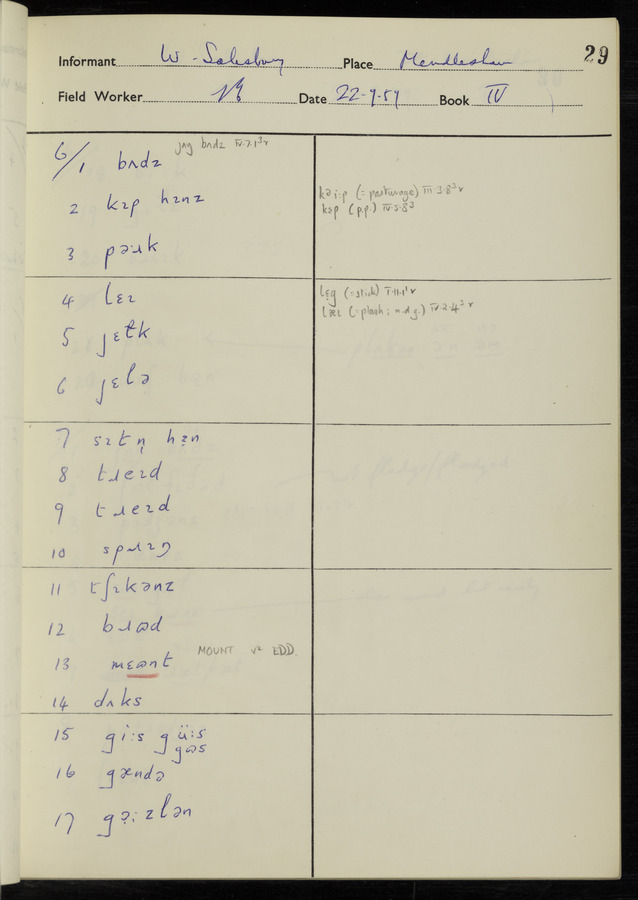 29
Informant W. Salesbury Place Mendlesham
Field Worker Date 22-9-59 Book IV
6/1 bʌdz jʌŋ bʌdz IV.7.1³ᵛ
2 kɪp hɪnz
kəiːp (= pasturage) III.3.8³ᵛ
kɛp (p.p.) IV.5.8³
3 pəːɹk
4 lɛɪ
lɛg (= stick) I.11.1¹ᵛ
læɪ (= plash; n.d.g.) IV.2.4³ᵛ
5 jɛɫk
6 jɛlə
7 sɪtn̩ hɛ̝n
8 tɹeɪd
9 tɹeɪd
10 spɹɪŋ
11 tʃɪkənz
12 bɹɷd
13 mɛɷnt MOUNT v² EDD.
14 dʌks
15 giːs güːs
gɷs
16 gændə
17 gə̣izlən